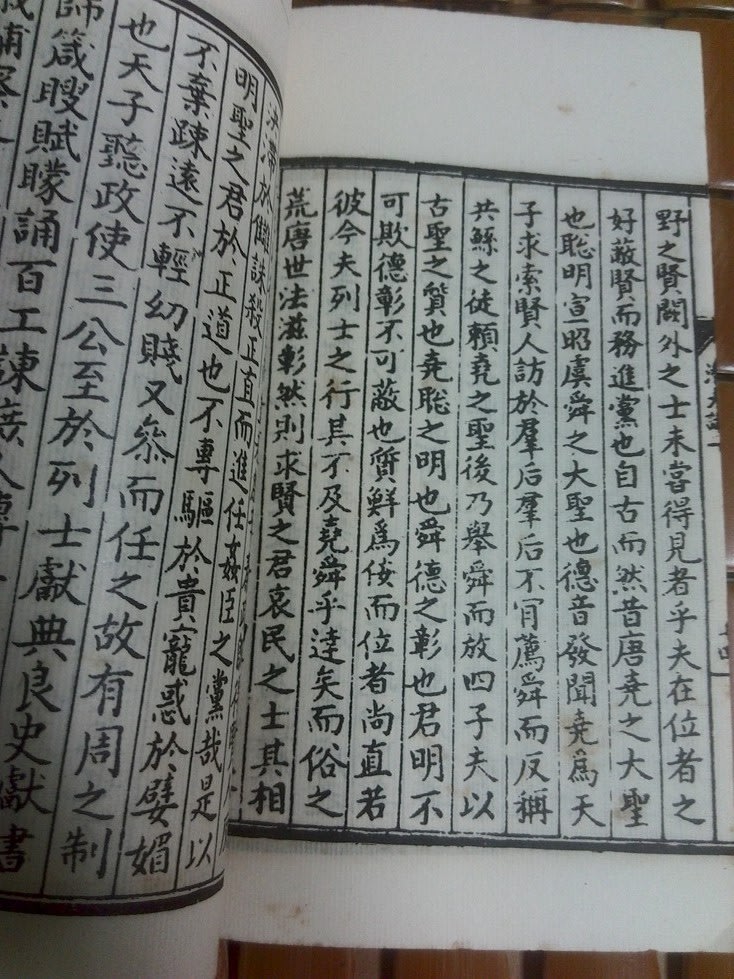 野之賢闕外之士未嘗得見者乎夫在位者之
好蔽賢而務進黨也自古而然昔唐堯之大聖
也聡明宣昭虞舜之大聖也德音發聞堯爲天
子求索賢人訪於羣后羣后不肯薦舜而反稱
共鯀之徒頼堯之聖後乃舉舜而放四子夫以
古聖之質也堯聡之明也舜德之彰也君明不
可欺德彰不可蔽也質鮮爲佞而位者尚直若
彼今夫列士之行其不及堯舜乎達矣而俗之
荒唐世法滋彰然則求賢之君哀民之士其相
滯於讎誅殺正直而進任姦臣之黨哉是以
明聖之君於正道也不專驅於貴寵惑於嬖媚
不棄踈遠不輕幼賤又叅而任之故有周之制
也天子聽政使三公至於列士獻典良史獻書
師箴瞍賦矇誦百工諫庶人傳